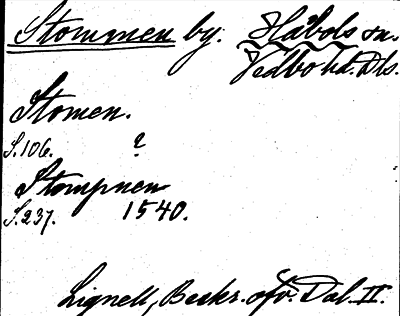 Stommen by. Håbols sn.
Vedbo hd. Dls.
Stomen.
S. 106. ?
Stompnen
S. 237. 1540.
Lignell, Beskr. öfv. Dal II.